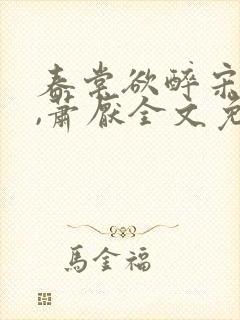 春棠欲醉宋
,萧厌全文免
馬金福